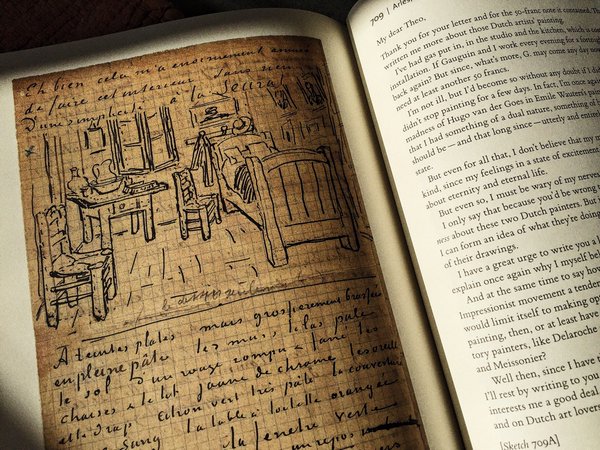 Eh bien cela m'a énormément amusé
de faire cet intérieur Sans rien
D'une simplicité à la Seurat
A teintes plates mais grossièrement brossées
en pleine pâte les murs lilas pâle
le sol d'un rouge rompu & fané les
chaises & le lit jaune de chrome les oreillers
et le drap citron vert très pâle la couverture
sang la table à toilette orangée
la fenêtre verte
709 | Arles
My dear Theo,
Thank you for your letter and for the 50-franc note it contained.
written me more about those Dutch artists' painting.
I've had gas put in, in the studio and the kitchen, which
installation. If Gauguin and I work every evening for a fortnight
back again? But since, what's more, G. may come any day now
need at least another 50 francs.
I'm not ill, but I'd become so without any doubt if I
didn't stop painting for a few days. In fact, I'm once again
madness of Hugo van der Goes in Emile Wauters's
that I had something of a dual nature, something of
should be — and that long since — utterly and
But even for all that, I don't believe that my
kind, since my feelings in a state of excitement
about eternity and eternal life.
But even so, I must be wary of my nerves
I only say that because you'd be wrong
ness about these two Dutch painters. But
I can form an idea of what they're doing
of their drawings.
I have a great urge to write you a
explain once again why I myself
And at the same time to say how
Impressionist movement a
would limit itself to making
painting, then, or at least have
tory painters, like Delaroche
and Meissonier?
Well then, since I have
I'll rest by writing to you
interests me a good deal
and on Dutch art lovers
[Sketch 709A]